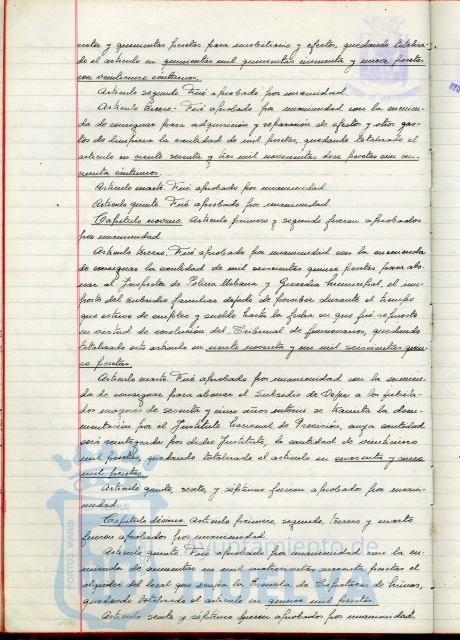 sesetas y quinientas pesetas para mobiliario y efectos, quedando totaliza-
do el artículo en quinientas mil quinientas cincuenta y nueve pesetas
con veinticinco céntimos.
Artículo segundo. Fué aprobado por unanimidad.
Artículo tercero. Fué aprobado por unanimidad con la enmien-
da de consignar para adquisición y reparación de efectos y otros gas-
tos de limpieza la cantidad de mil pesetas, quedando totalizado el
artículo en ciento sesenta y tres mil novecientas doce pesetas con cin-
cuenta céntimos.
Artículo cuarto. Fué aprobado por unanimidad.
Artículo quinto. Fué aprobado por unanimidad.
Capítulo noveno. Artículo primero y segundo fueron aprobados
por unanimidad.
Artículo tercero. Fué aprobado por unanimidad con la enmienda
de consignar la cantidad de mil seiscientas quince pesetas para abo-
nar al Inspector de Policía Urbana y Guardia Municipal, el im-
porte del subsidio familiar dejado de percibir durante el tiempo
que estuvo de empleo y sueldo hasta la fecha en que fué repuesto
en virtud de resolución del Tribunal de funcionarios, quedando
totalizado este artículo en ciento noventa y un mil seiscientas quin-
ce pesetas.
Artículo cuarto. Fué aprobado por unanimidad con la enmien-
da de consignar para abonar el Subsidio de Vejez a los jubila-
dos mayores de sesenta y cinco años interin se tramita la docu-
mentación por el Instituto Nacional de Previsión, cuya cantidad
será reintegrada por dicho Instituto, la cantidad de veinticinco
mil pesetas, quedando totalizado el artículo en cuarenta y cinco
mil pesetas.
Artículo quinto, sexto, y séptimo fueron aprobado por unani-
midad.
Capítulo décimo. Artículo primero, segundo, tercero y cuarto
fueron aprobados por unanimidad.
Artículo quinto. Fué aprobado por unanimidad con la en-
mienda de aumentar en mil cuatrocientas cuarenta pesetas el
alquiler del local que ocupa la Escuela de Capataces de Minas,
quedando totalizado el artículo en quince mil pesetas.
Artículo sexto y séptimo fueron aprobado por unanimidad.
Ayuntamiento de
PORTUS MARIS